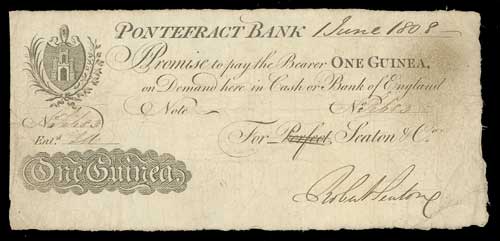 PONTEFRACT BANK 1 June 1808
I Promise to pay the Bearer ONE GUINEA,
on Demand here in Cash or Bank of England
Note
For Perfect, Seaton & Co.
Ent.d
One Guinea.
Robt Seaton